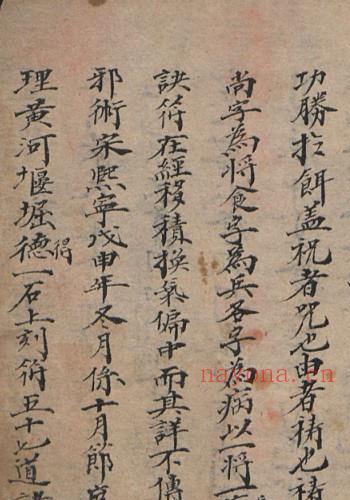 功勝於餌蓋祝者咒也由者禱也禱
尚字為將食字為兵各字為病以一將
訣符在經移積換氣偏中而其詳不傳
邪術宋熙寧戊申年冬月係十月郎
理黃河堰堀德一石上刻符五十七道
得
nayona.cn